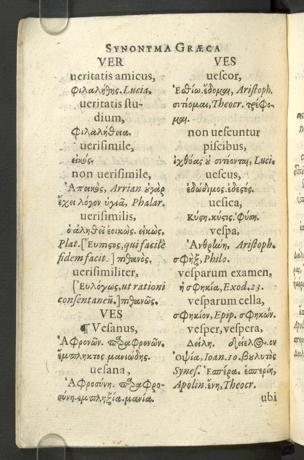 SYNONYMA GRÆCA
VER
ueritatis amicus,
φιλαλήθης. Lucia.
ueritatis stu-
dium,
φιλαλήθεια.
uerisimile,
εἰκός.
non uerisimile,
Arrian.
ἔχει λόγον ὑγιᾶ, Phalar.
uerisimilis,
ὁ ἀληθεῖ ἐοικώς. εἰκώς.
Plat. [Εὔπιστος, qui facilè
fidem facit.] πιθανός.
uerisimiliter,
[Εὐλόγως, ut rationi
consentaneũ,] πιθανῶς.
VES
¶ Vesanus,
Ἄφρονῶν. παραφρονῶν.
ἔμπληκτος μανιώδης.
uesana,
Ἀφροσύνη. παραφρο-
σύνη. ἐμπληξία. μανία.
VES
uescor,
Ἐσθίω. ἔδομαι, Aristoph.
σιτέομαι, Theocr. τρέφο-
μαι.
non uescuntur
piscibus,
ἰχθύας οὐ σιτέονται, Lucia
uescus,
ἐδώδιμος. ἐδεστός.
uesica,
Κύστη. κύστις. φύση.
vespa,
Ἀνθρήνη, Aristoph.
σφήξ, Philo.
vesparum examen,
ἡ σφηκία, Exod. 23.
vesparum cella,
σφηκίον, Epip. σφηκών.
vesper, vespera,
Δείλη.
ὀψία, Ioan. 10. βουλυτός
Synes. Ἑσπέρα. ἑσπερίη,
Apolin. Theocr.
ubi